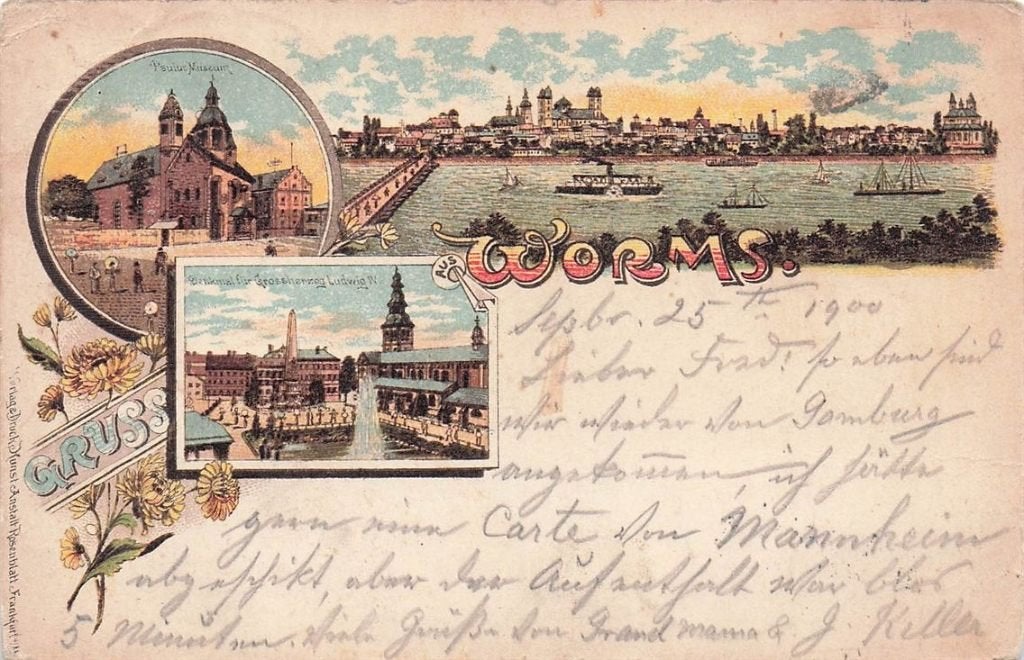 Paulus Museum
Denkmal für Grossherzog Ludwig IV
GRUSS
AUS
WORMS.
Septbr. 25th 1900
Lieber Fred! so eben sind
wir wieder von Homburg
angekommen, ich hätte
gern eine Carte von Mannheim
abgeschikt, aber der Aufenthalt war blos
5 Minuten. Viele Grüße von Grand mama & J. Keller
Kunst-Anstalt Rosenblatt Frankfurt